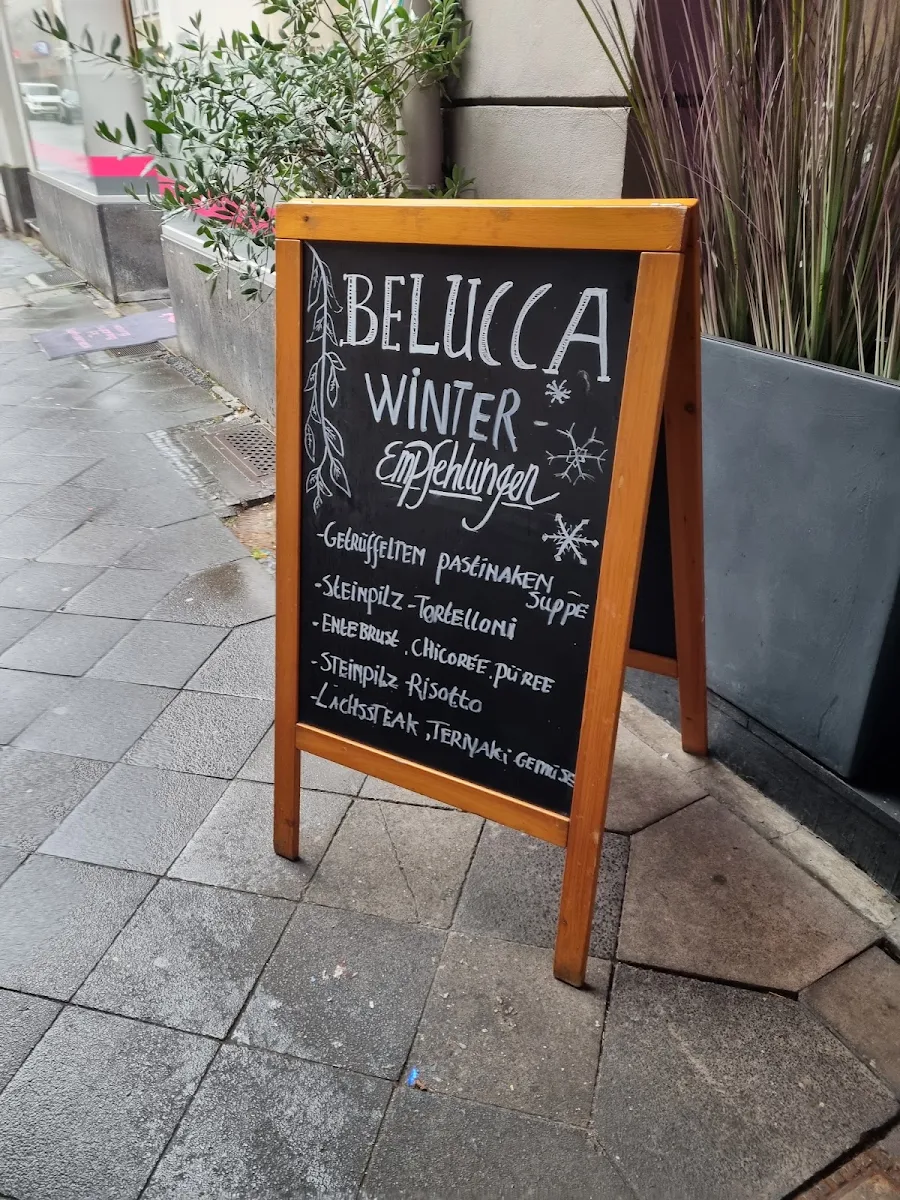 BELUCCA
WINTER-
Empfehlungen
-GETRÜFFELTEM PASTINAKEN
SUPPE
-STEINPILZ-TORTELLONI
-ENTEBRUST, CHICORÉE.PÜREE
-STEINPILZ RISOTTO
-LACHSSTEAK, TERIYAKI GEMÜSE